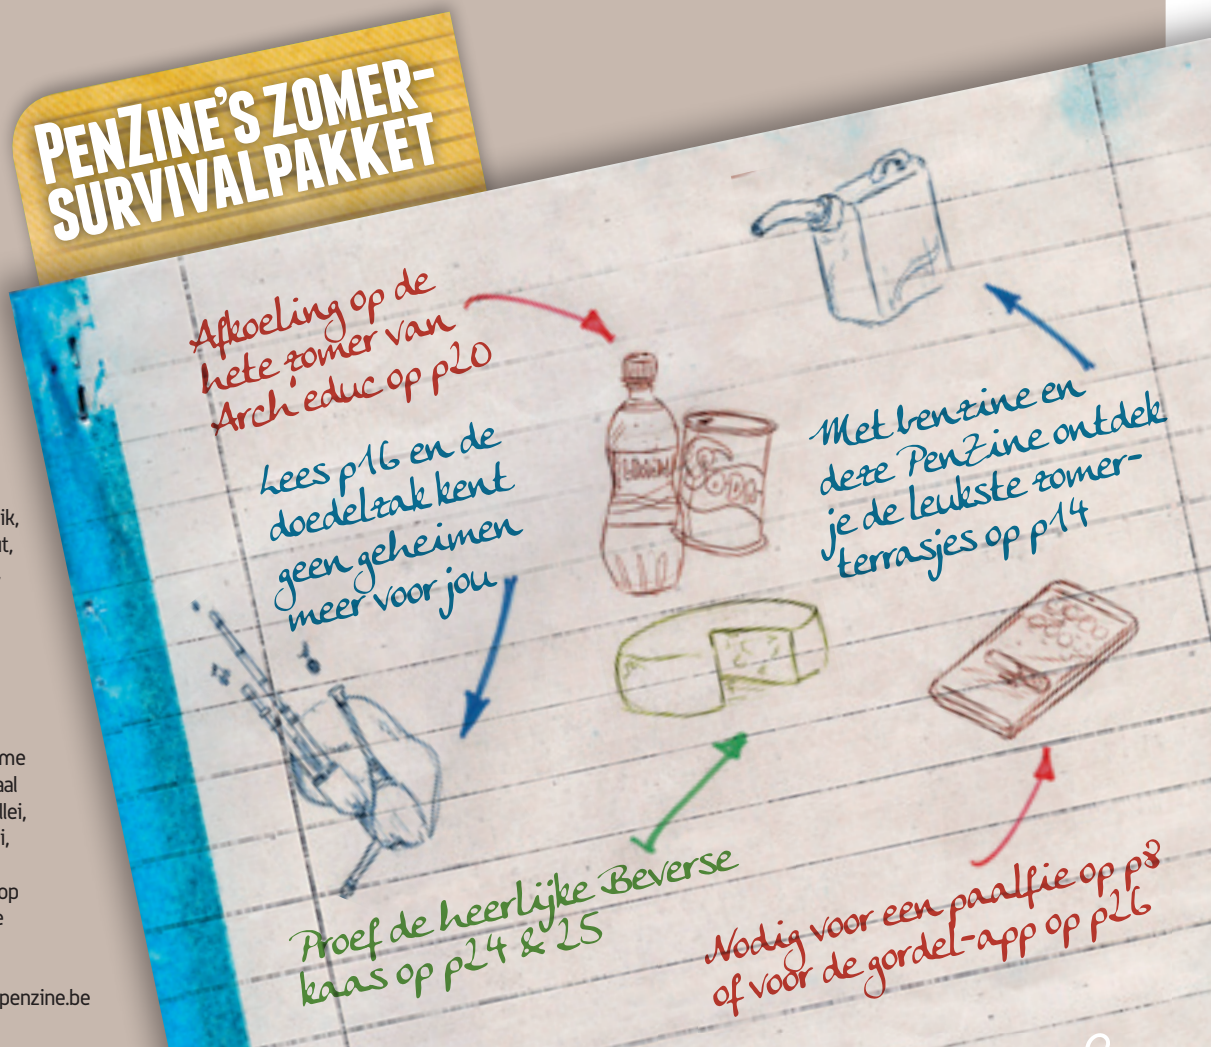 PENZINE'S ZOMER-
SURVIVALPAKKET
Afkoeling op de
hete zomer van
Arch'educ op p20
Lees p16 en de
doedelzak kent
geen geheimen
meer voor jou
Met benzine en
deze PenZine ontdek
je de leukste zomer-
terrasjes op p14
SODA
Proef de heerlijke Beverse
kaas op p24 & 25
Nodig voor een paalfie op p8
of voor de gordel-app op p26
ik,
me
aal
llei,
i,
op
e
penzine.be